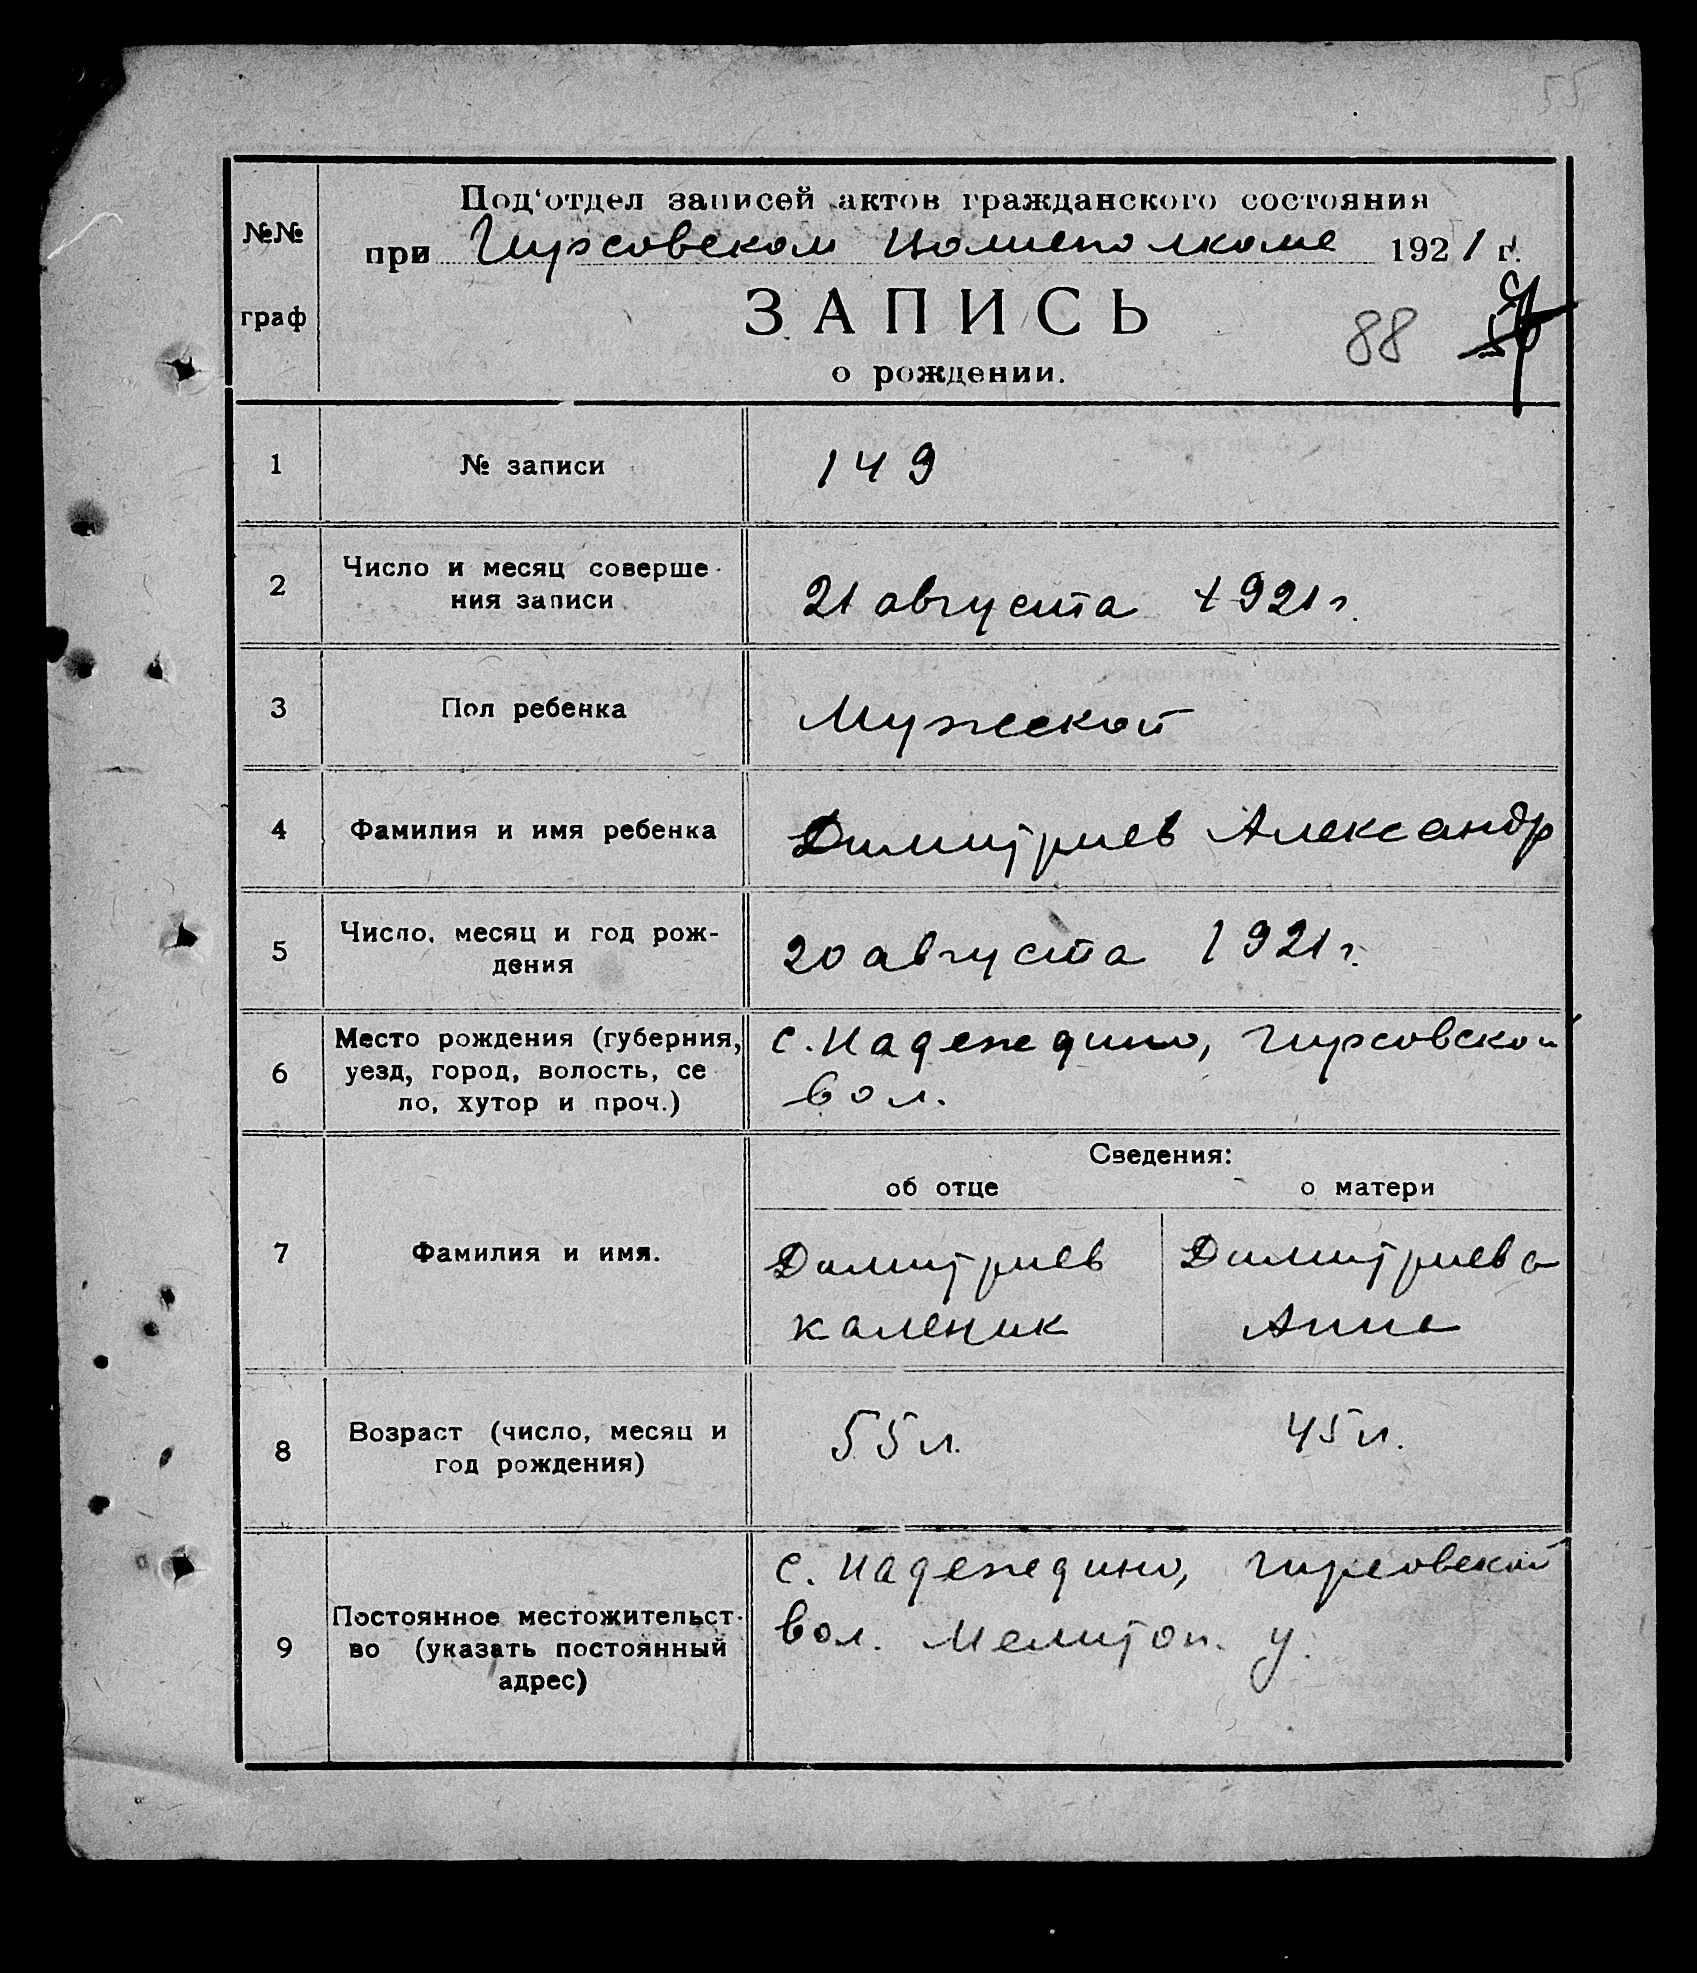 55
№№
граф
Под‘отдел записей актов гражданского состояния
при Гирсовском волисполкоме 1921 г.
ЗАПИСЬ
о рождении.
88
1
№ записи
149
2
Число и месяц соверше-
ния записи
21 августа 1921 г.
3
Пол ребенка
Мужской
4
Фамилия и имя ребенка
Димитриев Александр
5
Число, месяц и год рож-
дения
20 августа 1921 г.
6
Место рождения (губерния,
уезд, город, волость, се
ло, хутор и проч.)
с. Надеждино, Гирсовской
вол.
Сведения:
об отце
о матери
7
Фамилия и имя.
Димитриев
Каленик
Димитриева
Анна
8
Возраст (число, месяц и
год рождения)
55 л.
45 л.
9
Постоянное местожительст-
во (указать постоянный
адрес)
с. Надеждино, Гирсовской
вол. Мелитоп. у.